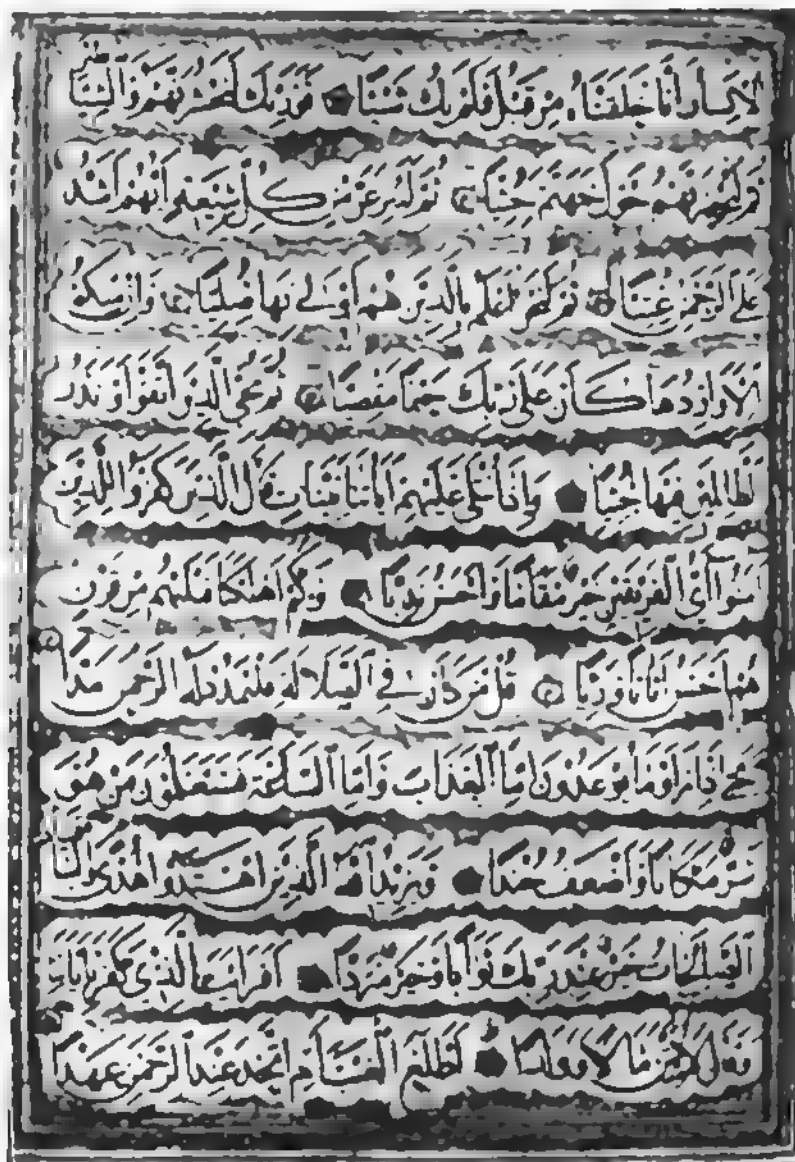 الانسان انا خلقناه من قبل ولم يك شيئا فوربك لنحشرنهم والشياطين
ثم لنحضرنهم حول جهنم جثيا ثم لننزعن من كل شيعة ايهم اشد
على الرحمن عتيا ثم لنحن اعلم بالذين هم اولى بها صليا وان منكم
الا واردها كان على ربك حتما مقضيا ثم ننجي الذين اتقوا ونذر
الظالمين فيها جثيا واذا تتلى عليهم اياتنا بينات قال الذين كفروا للذين
امنوا اي الفريقين خير مقاما واحسن نديا وكم اهلكنا قبلهم من قرن
هم احسن اثاثا ورئيا قل من كان في الضلالة فليمدد له الرحمن مدا
حتى اذا راوا ما يوعدون اما العذاب واما الساعة فسيعلمون من هو
شر مكانا واضعف جندا ويزيد الله الذين اهتدوا هدى والباقيات
الصالحات خير عند ربك ثوابا وخير مردا افرايت الذي كفر باياتنا
وقال لاوتين مالا وولدا اطلع الغيب ام اتخذ عند الرحمن عهدا